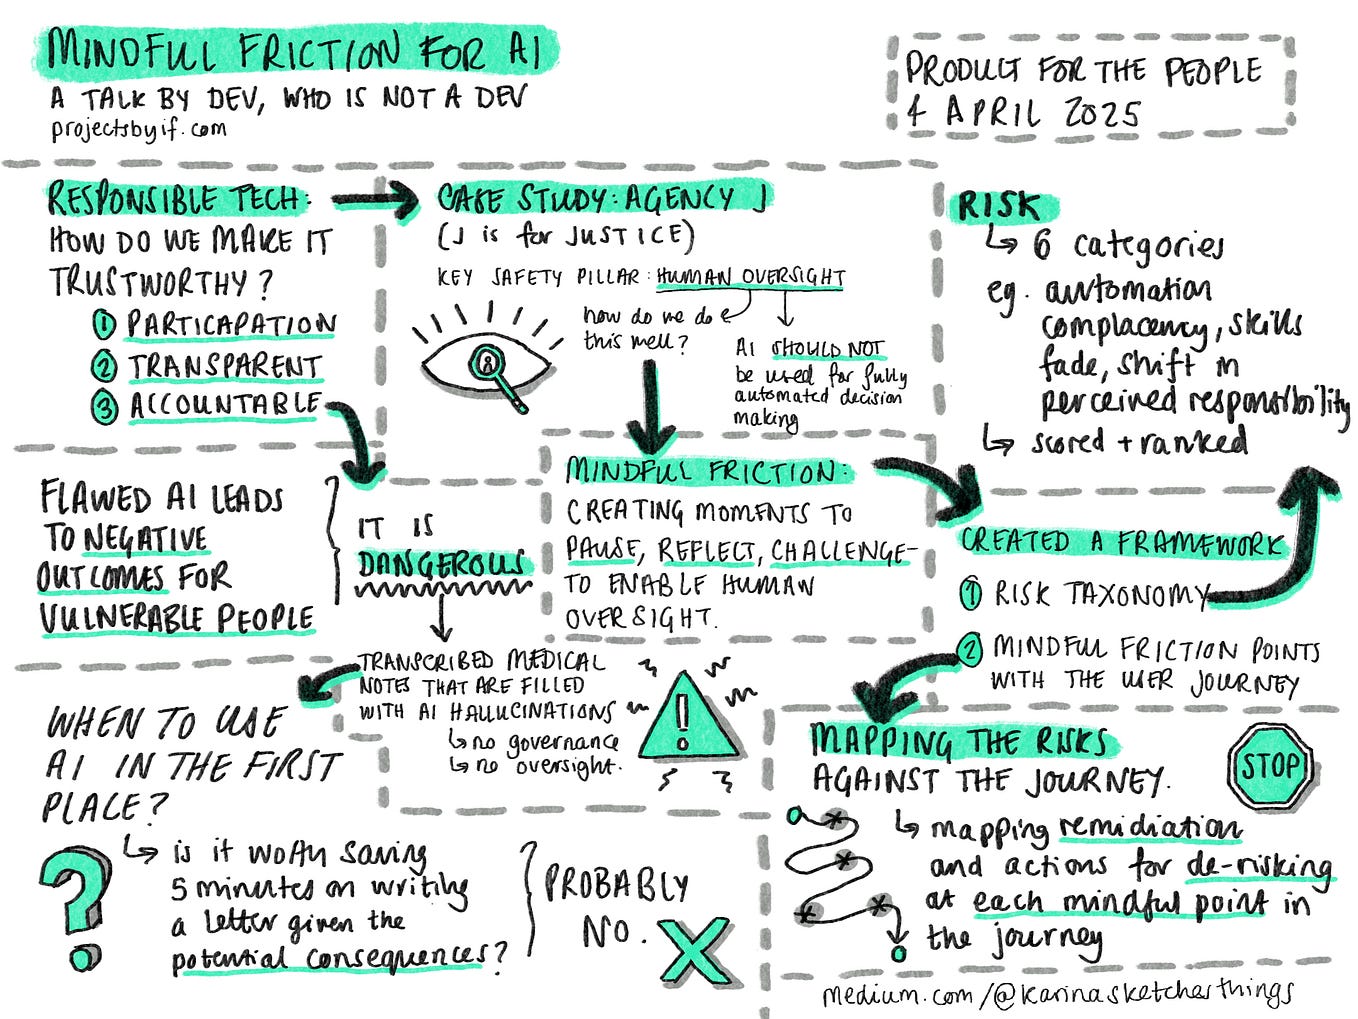 MINDFUL FRICTION FOR AI
A TALK BY DEV, WHO IS NOT A DEV
projectsbyif.com
PRODUCT FOR THE PEOPLE
4 APRIL 2025
RESPONSIBLE TECH:
HOW DO WE MAKE IT
TRUSTWORTHY?
1 PARTICAPATION
2 TRANSPARENT
3 ACCOUNTABLE
CASE STUDY: AGENCY J
(J is for JUSTICE)
KEY SAFETY PILLAR: HUMAN OVERSIGHT
how do we do
this well?
AI SHOULD NOT
be used for fully
automated decision
making
RISK
↳ 6 categories
eg. automation
complacency, skills
fade, shift in
perceived responsibility
↳ scored + ranked
FLAWED AI LEADS
TO NEGATIVE
OUTCOMES FOR
VULNERABLE PEOPLE
IT IS
DANGEROUS
MINDFUL FRICTION:
CREATING MOMENTS TO
PAUSE, REFLECT, CHALLENGE-
TO ENABLE HUMAN
OVERSIGHT.
CREATED A FRAMEWORK
1 RISK TAXONOMY
2 MINDFUL FRICTION POINTS
WITH THE USER JOURNEY
TRANSCRIBED MEDICAL
NOTES THAT ARE FILLED
WITH AI HALLUCINATIONS
↳ no governance
↳ no oversight.
!
WHEN TO USE
AI IN THE FIRST
PLACE?
?
↳ is it worth saving
5 minutes on writing
a letter given the
potential consequences?
PROBABLY
NO.
MAPPING THE RISKS
AGAINST THE JOURNEY.
STOP
↳ mapping remidiation
and actions for de-risking
at each mindful point in
the journey
medium.com/@karinasketcherthings